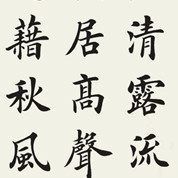 清露流
居高聲
藉秋風